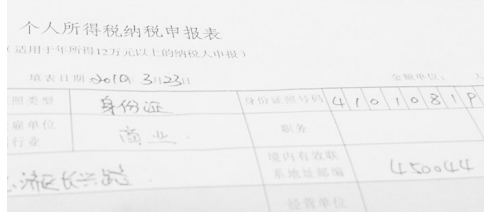 个人所得税纳税申报表
(适用于年所得12万元以上的纳税人申报)
填表日期 2010年 3月23日 金额单位: 人
照类型 身份证 身份证照号码 4 1 0 1 0 8 1 9
雇单位 商业 职务
行业
济区长兴路 境内有效联 450044
系地址邮编
经营单位